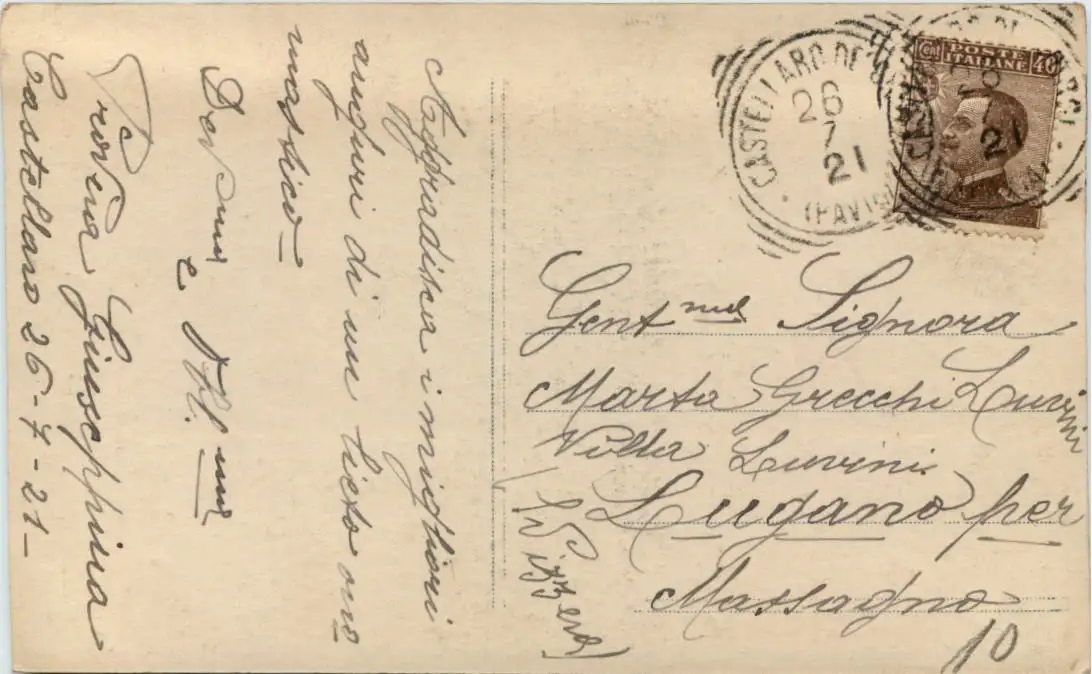 Aggradisca i migliori
auguri di un lieto ono
mastico
Dev ma
e Aff. ma
Provera Giuseppina
Castellaro 26-7-21-
Cent POSTE 40
ITALIANE
CASTELLARO DE'
26
7
21
(PAVIA)
21
Gent ma Signora
Marta Grecchi Luvini
Villa Luvini
Lugano per
Massagno
(Svizzera)
10